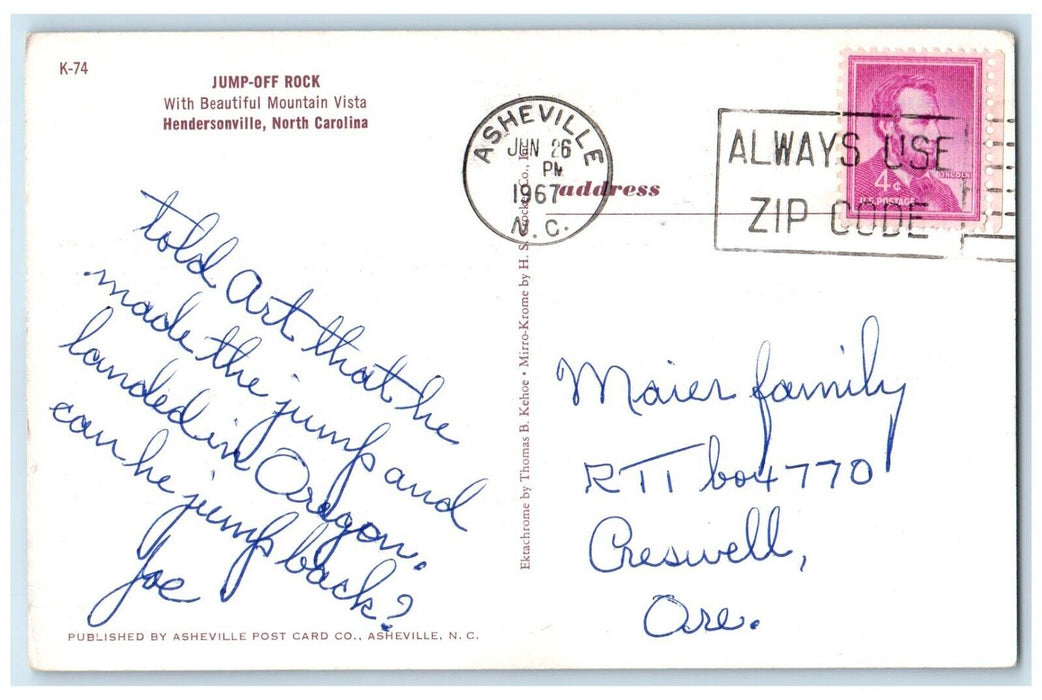 K-74
JUMP-OFF ROCK
With Beautiful Mountain Vista
Hendersonville, North Carolina
told Art that he
made the jump and
landed in Oregon.
can he jump back?
Joe
PUBLISHED BY ASHEVILLE POST CARD CO., ASHEVILLE, N. C.
Ektachrome by Thomas B. Kehoe • Mirro-Krome by H. S. Co.,
ASHEVILLE
JUN 26
PM
1967
N. C.
address
ALWAYS USE
ZIP CODE
LINCOLN
4¢
U.S. POSTAGE
Maier family
RT 1 box 770
Creswell,
Ore.